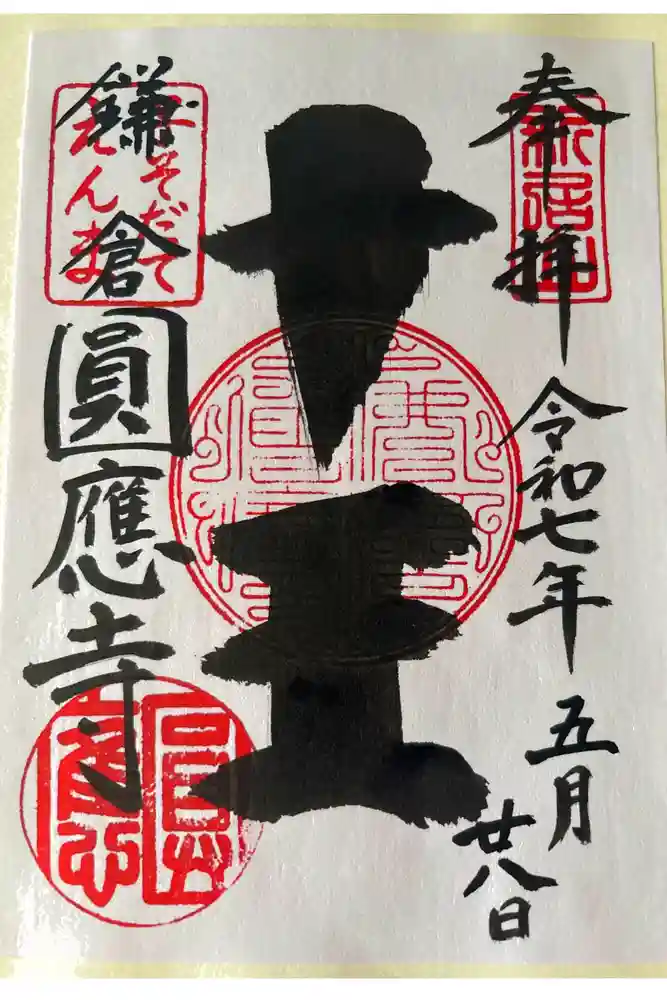 奉拝
新居山
令和七年
五月
廿八日
十王
鎌倉
子そだて
えんま
圓應寺